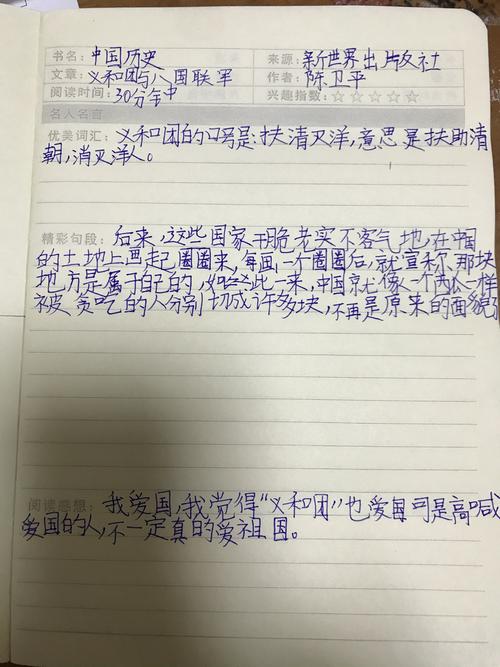 书名: 中国历史 来源: 新世界出版社
文章: 义和团与八国联军 作者: 陈卫平
阅读时间: 30分钟 兴趣指数: ☆☆☆☆☆
名人名言
优美词汇: 义和团的口号是:扶清灭洋,意思是扶助清
朝,消灭洋人。
精彩句段: 后来,这些国家干脆老实不客气地,在中国
的土地上画起圈圈来,每画一个圈圈后,就宣称那块
地方是属于自己的,如此一来,中国就像一个西瓜一样
被贪吃的人分别切成许多块,不再是原来的面貌了
阅读感想: 我爱国,我觉得“义和团”也爱国可是高喊
爱国的人,不一定真的爱祖国。